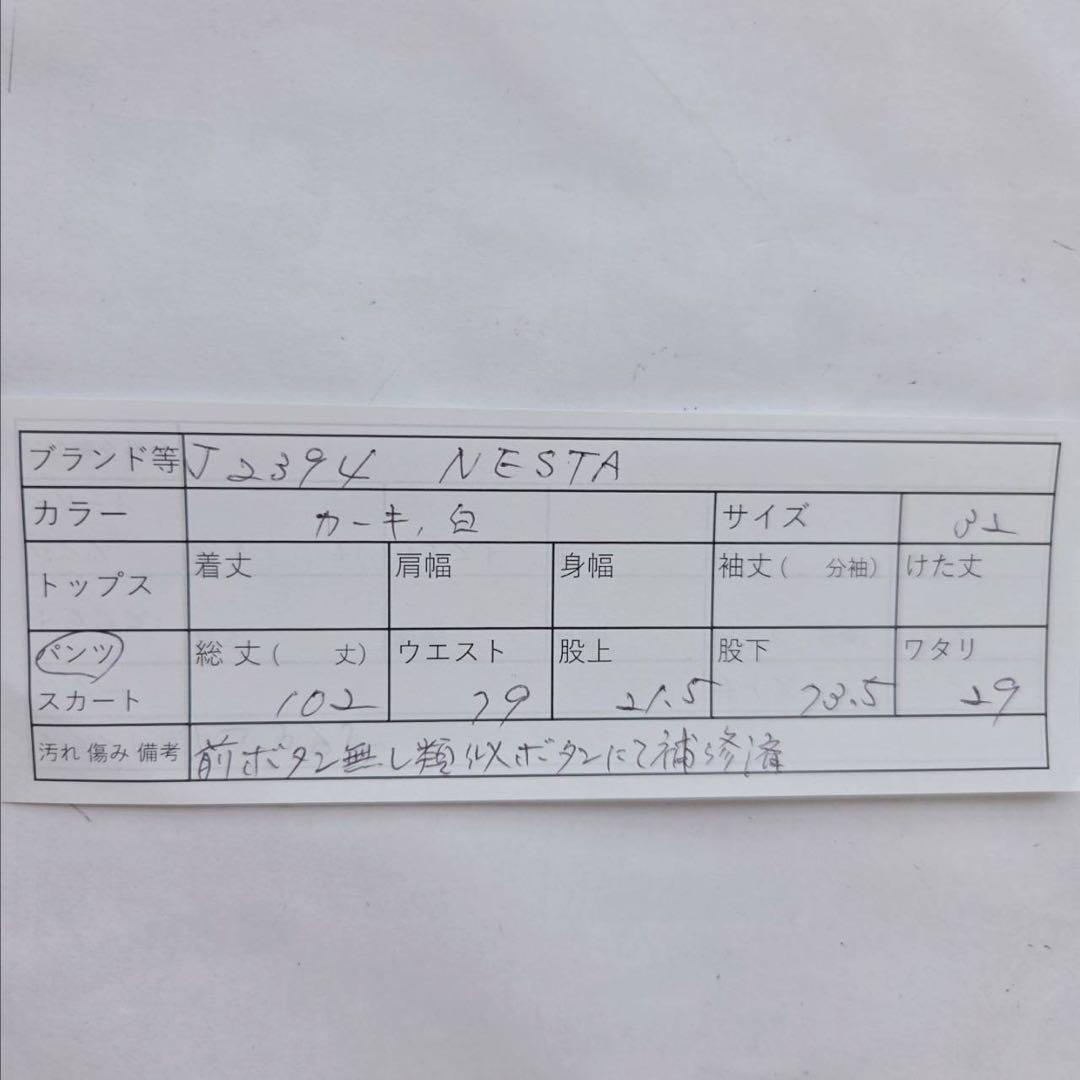 ブランド等 J2394 NESTA
カラー カーキ, 白 サイズ 32
トップス 着丈 肩幅 身幅 袖丈( 分袖) けた丈
パンツ 総丈( 丈) ウエスト 股上 股下 ワタリ
スカート 102 79 21.5 73.5 29
汚れ 傷み 備考 前ボタン無し類似ボタンにて補修済